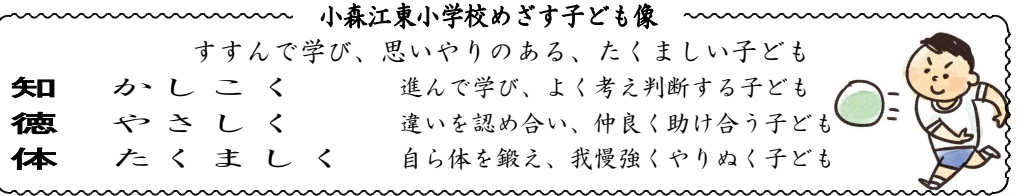 小森江東小学校めざす子ども像
すすんで学び、思いやりのある、たくましい子ども
知 かしこく 進んで学び、よく考え判断する子ども
徳 やさしく 違いを認め合い、仲良く助け合う子ども
体 たくましく 自ら体を鍛え、我慢強くやりぬく子ども